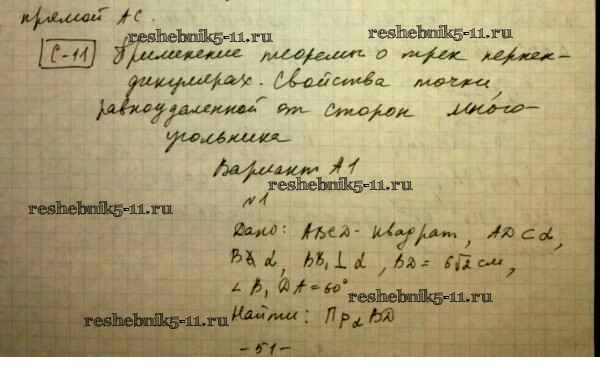 прямой AC.
reshebnik5-11.ru
С-11 Применение теоремы о трех перпен-
дикулярах. Свойства точки,
reshebnik5-11.ru
равноудаленной от сторон много-
угольника
Вариант А1
reshebnik5-11.ru
№1
reshebnik5-11.ru
Дано: ABCD - квадрат, AD ⊂ α,
B∉α, BB₁⊥α, BD = 6√2 см,
∠B₁DA = 60°
reshebnik5-11.ru
Найти: Пр_α BD
reshebnik5-11.ru
-51-